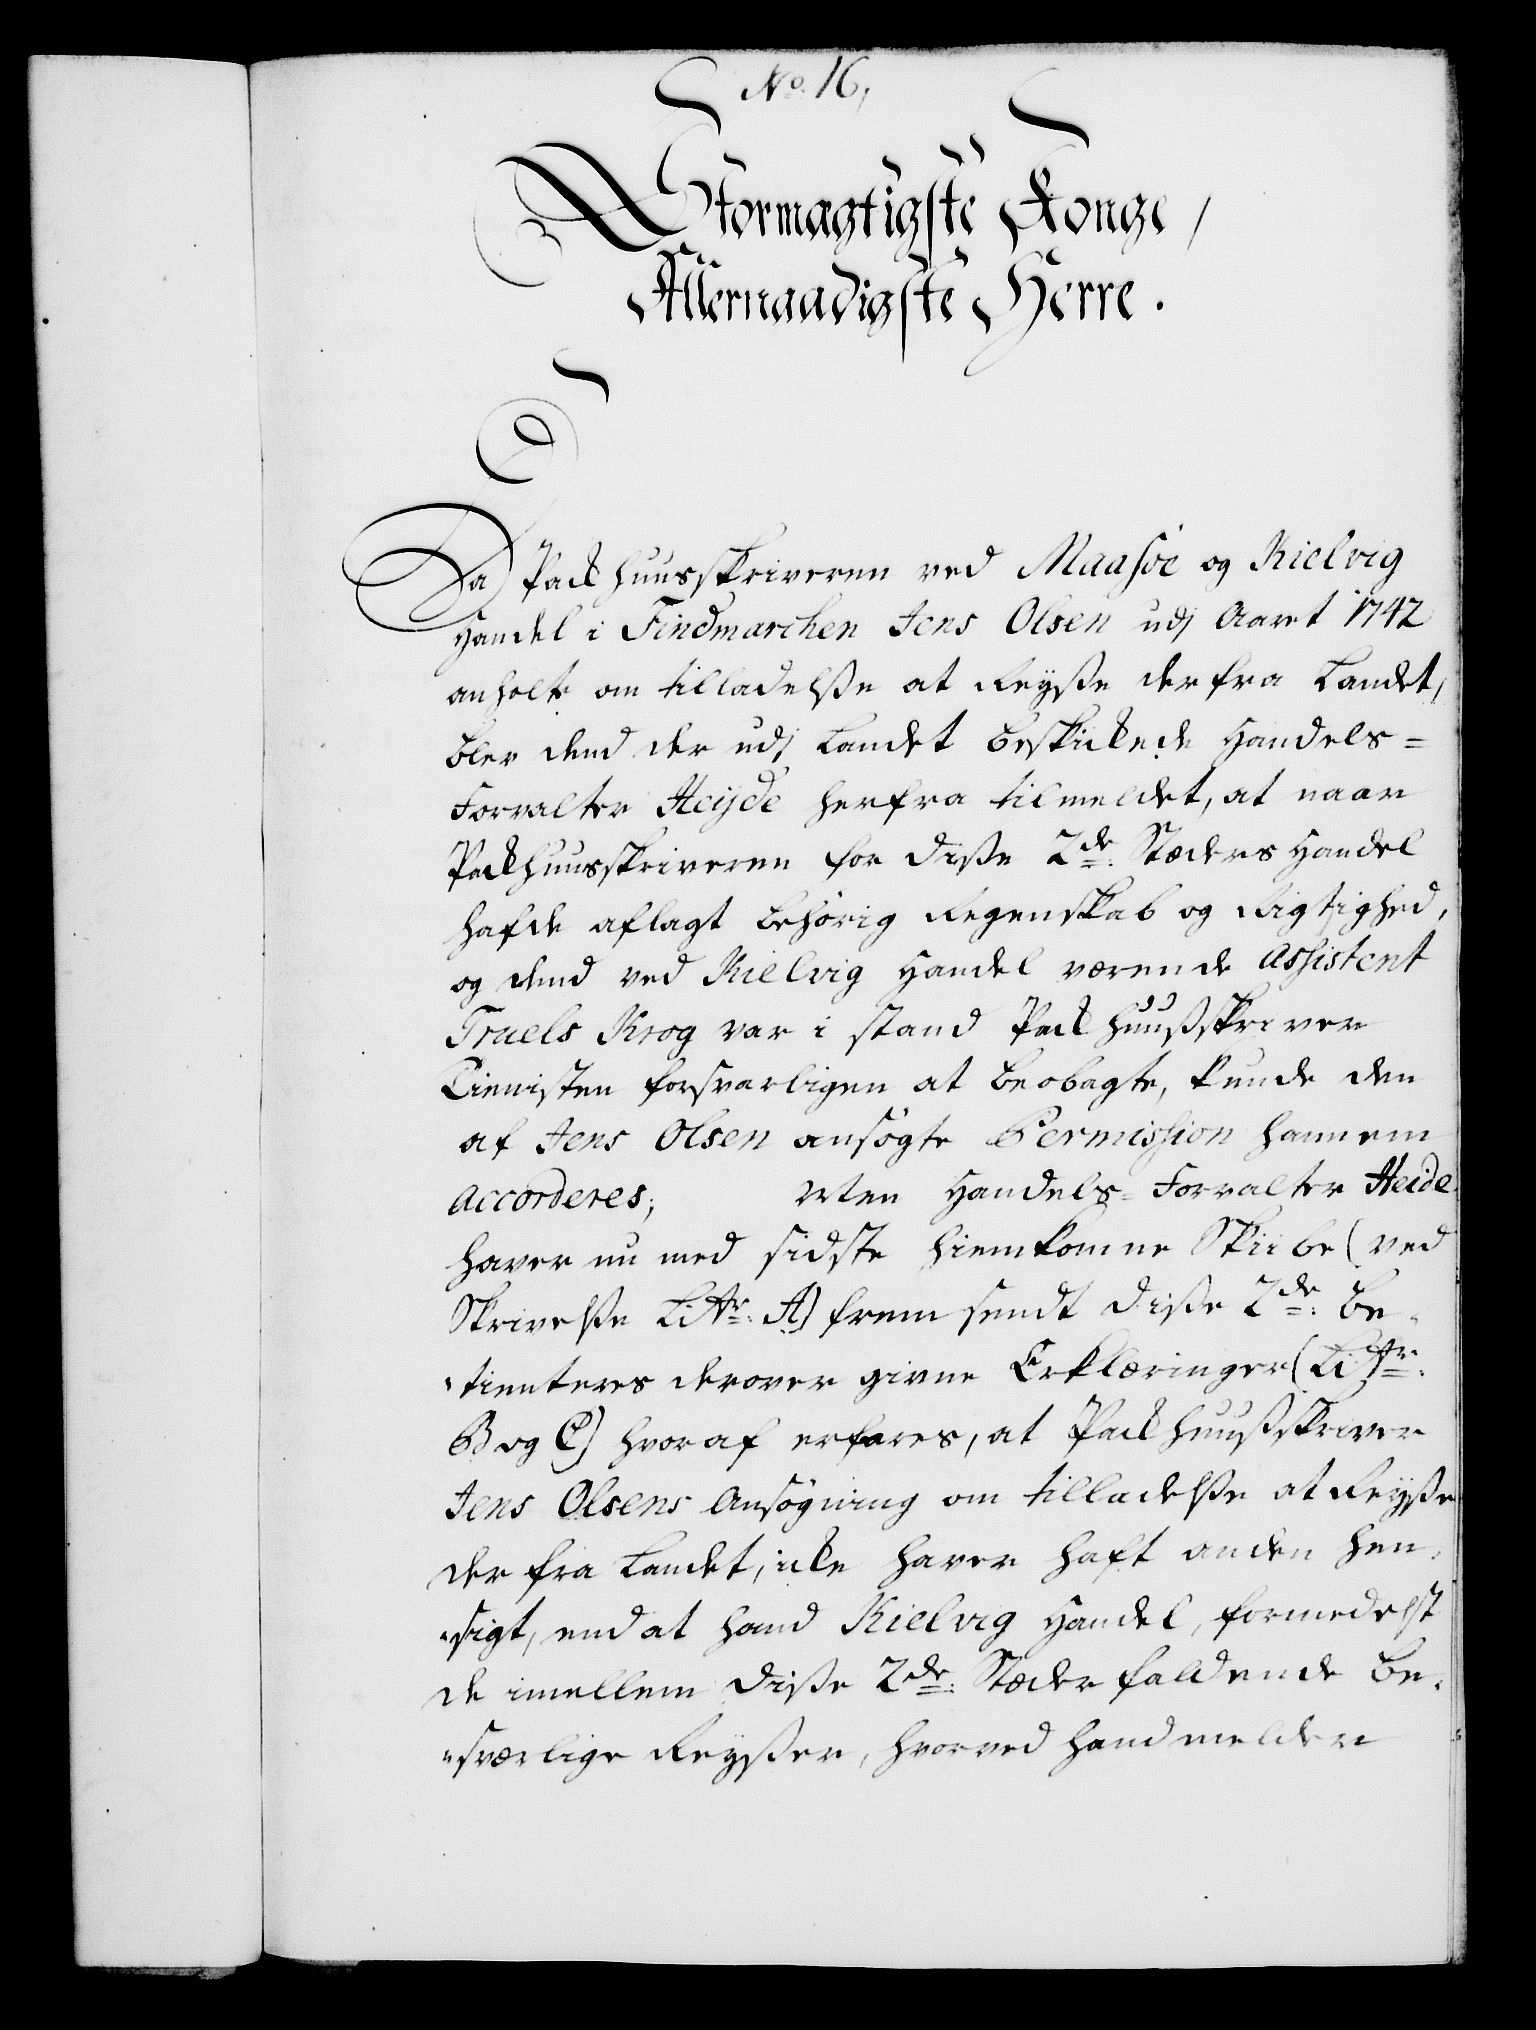 No: 16,
Stormagtigste Konge,
Allernaadigste Herre.
Da Packhuusskriveren ved Maasöe og Kielvig
Handel i Findmarchen Jens Olsen udj Aaret 1742
anholte om tilladelße at Reyße derfra Landet,
blev dend der udj Landet beskickede Handels=
Forvalter Heyde herfra tilmeldet, at naar
Packhuusskriveren for diße 2de: Stæders Handel
hafde aflagt behörig Regenskab og Rigtighed,
og dend ved Kielvig Handel værende Assistent
Truels Krog var i stand Packhuußskriver
Tienisten forsvarligen at beobagte, kunde den
af Jens Olsen ansögte Permission hannem
accorderes; Men Handels=Forvalter Heide
haver nu med sidste hiemkomne Skiibe (ved
Skrivelße Littr: A) frem sendt diße 2de: be=
tienteres derover givne Erklæringer (Littr:
B og C) hvoraf erfares, at Packhuußskriver
Jens Olsens Ansögning om tilladelße at Reyße
der fra Landet, icke haver haft anden hen=
sigt, end at hand Kielvig Handel, formedelst
de imellem diße 2de: Stæder faldende be=
sværlige Reyßer, hvorved hand melder